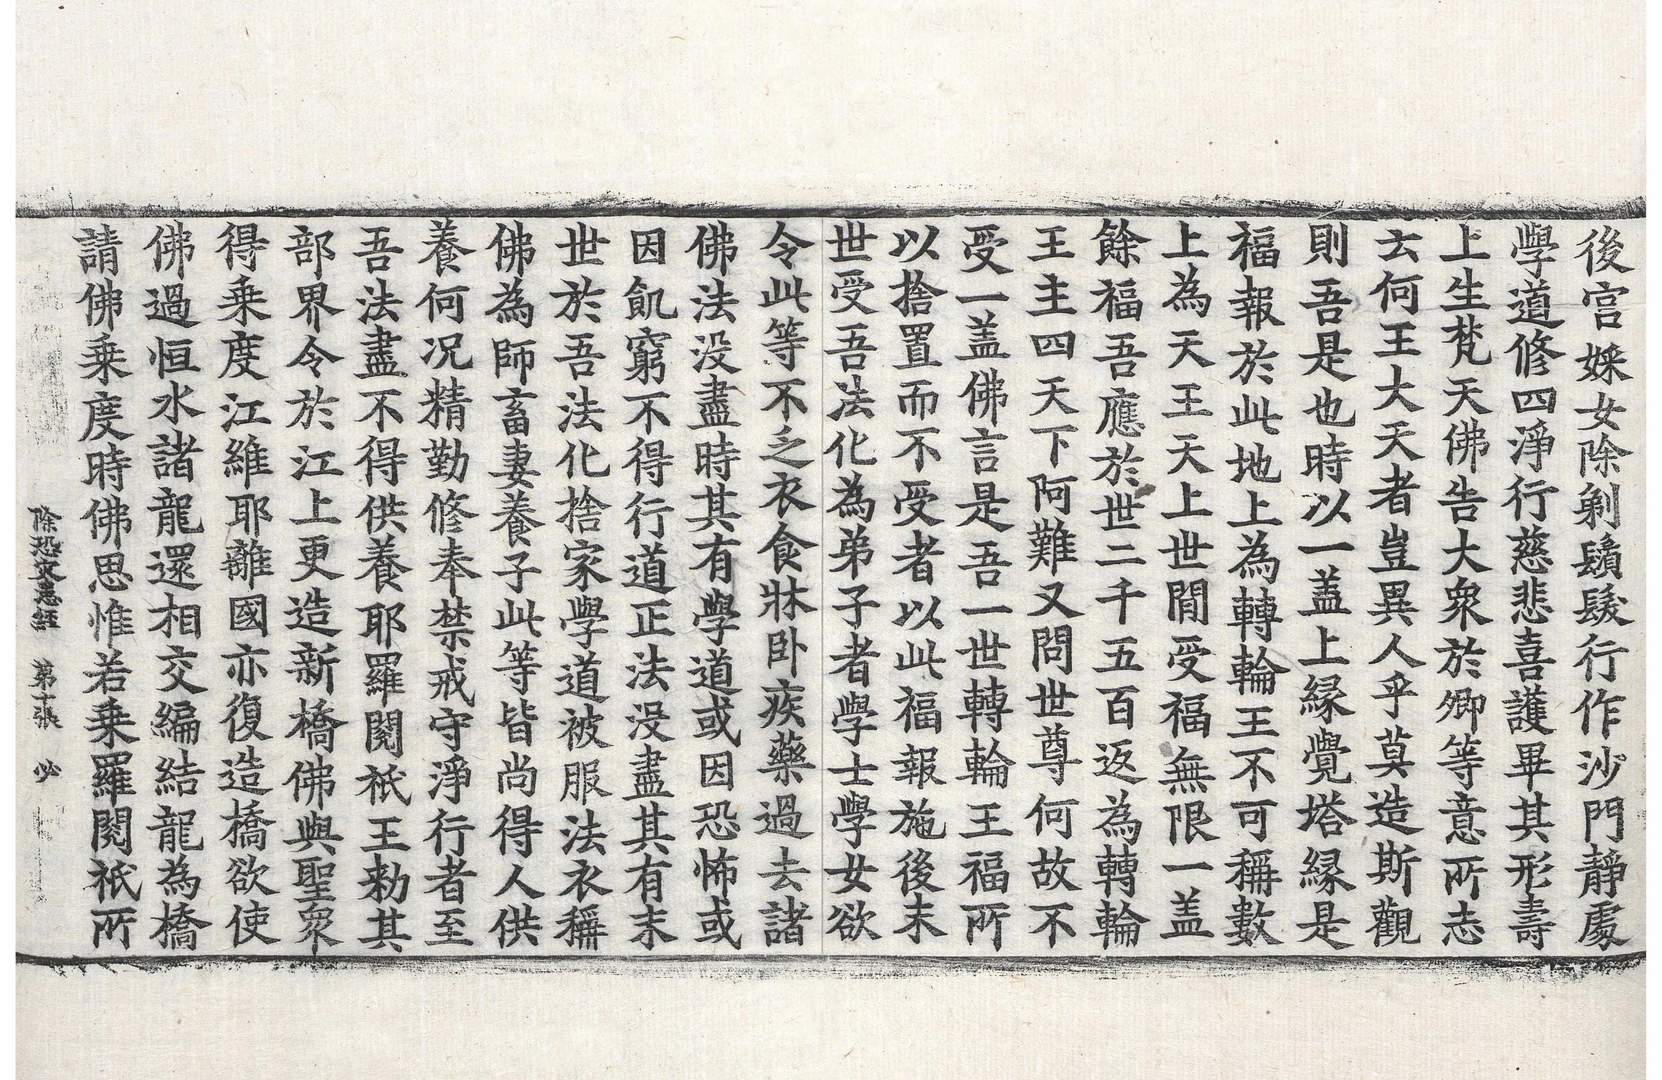 後宮婇女除剃鬚髮行作沙門靜處
學道修四淨行慈悲喜護畢其形壽
上生梵天佛告大眾於卿等意所志
云何王大天者豈異人乎莫造斯觀
則吾是也時以一盖上緣覺塔緣是
福報於此地上為轉輪王不可稱數
上為天王天上世間受福無限一盖
餘福吾應於世二千五百返為轉輪
王主四天下阿難又問世尊何故不
受一盖佛言是吾一世轉輪王福所
以捨置而不受者以此福報施後末
世受吾法化為弟子者學士學女欲
令此等不乏衣食牀卧疾藥過去諸
佛法没盡時其有學道或因恐怖或
因飢窮不得行道正法没盡其有末
世於吾法化捨家學道被服法衣稱
佛為師畜妻養子此等皆尚得人供
養何况精勤修奉禁戒守淨行者至
吾法盡不得供養耶羅閱祇王勑其
部界令於江上更造新橋佛與聖眾
得乘度江維耶離國亦復造橋欲使
佛過恒水諸龍還相交編結龍為橋
請佛乘度時佛思惟若乘羅閱祇所
除恐灾患經 第十張 必